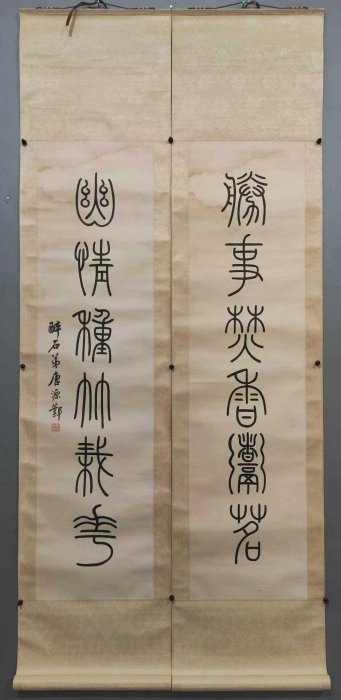 勝事焚香鬻茗
幽情種竹栽花
醉石弟唐源鄴